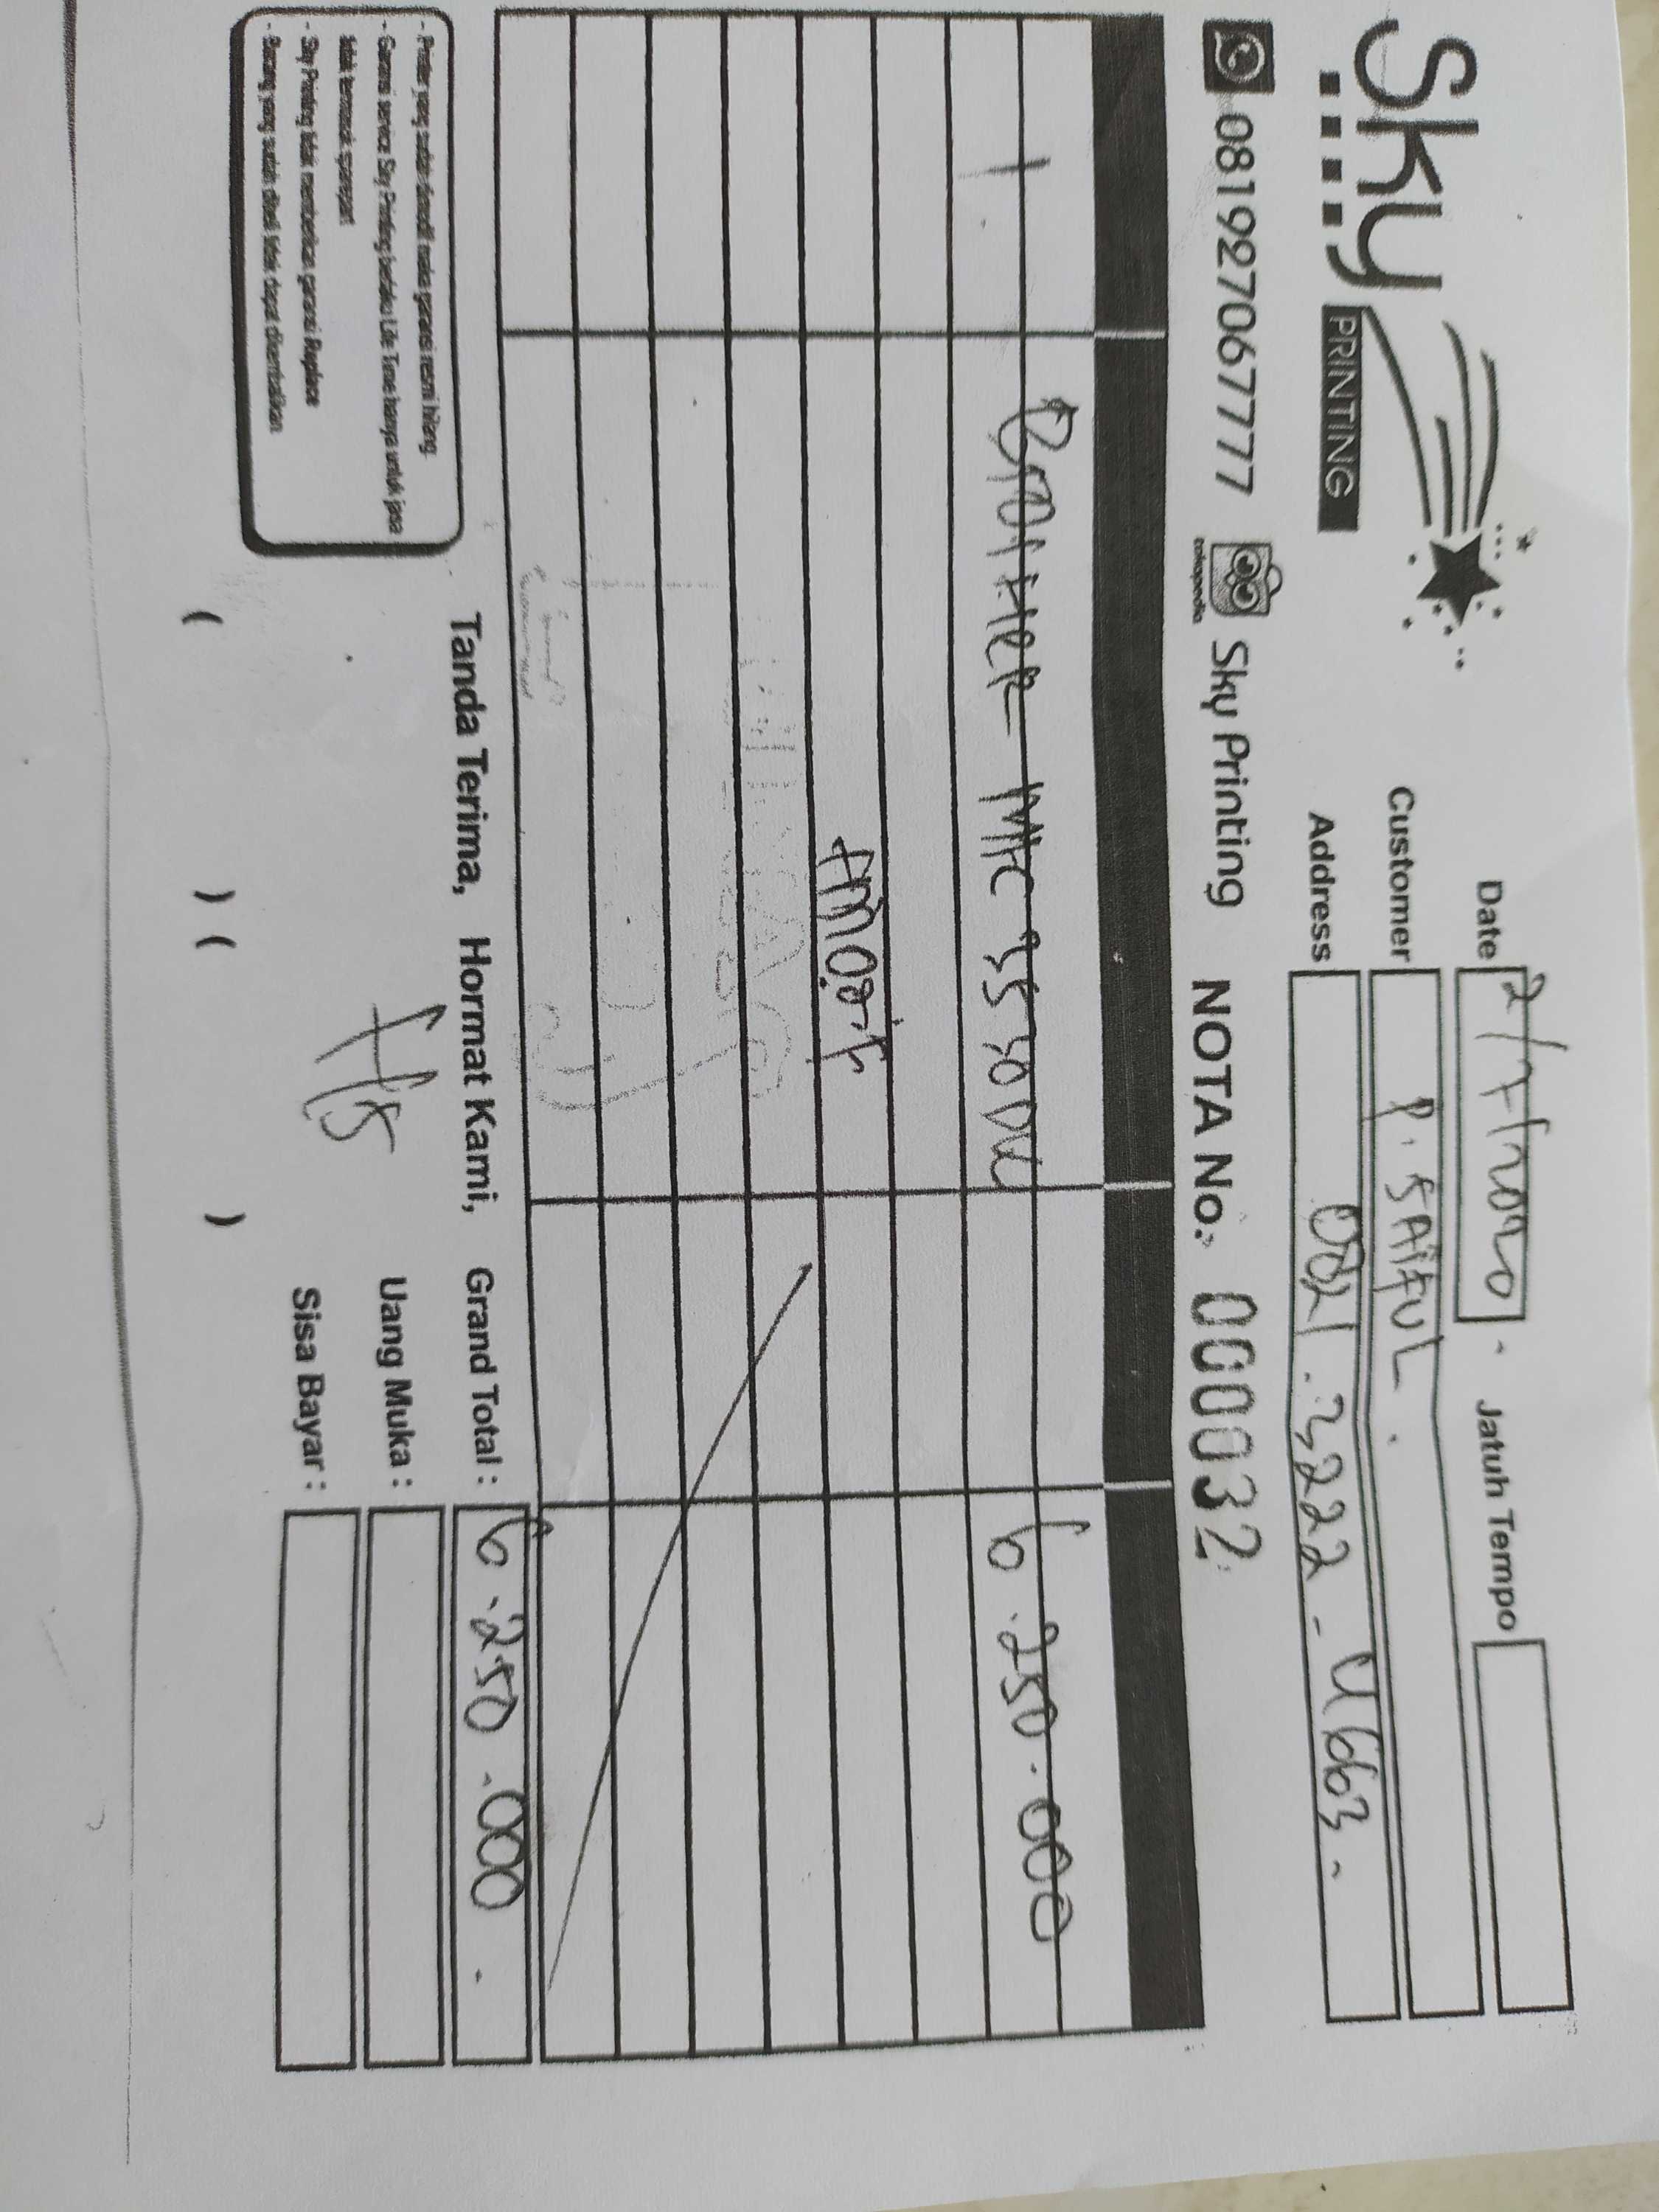 Sky
PRINTING
Date 2/7/2020 - Jatuh Tempo
Customer P. SAIFUL .
Address 0821.3222-4663-
081927067777 tokopedia Sky Printing NOTA No. 000032
1 BROTHER MFC 3530DW 6.250.000
Tanda Terima, Hormat Kami, Grand Total : 6.250.000.
Uang Muka :
Sisa Bayar :
( ) ( )
- Printer yang sudah dimodif maka garansi resmi hilang
- Garansi service Sky Printing berlaku Life Time hanya untuk jasa
tidak termasuk sparepart
- Sky Printing tidak memberikan garansi Replace
- Barang yang sudah dibeli tidak dapat dikembalikan